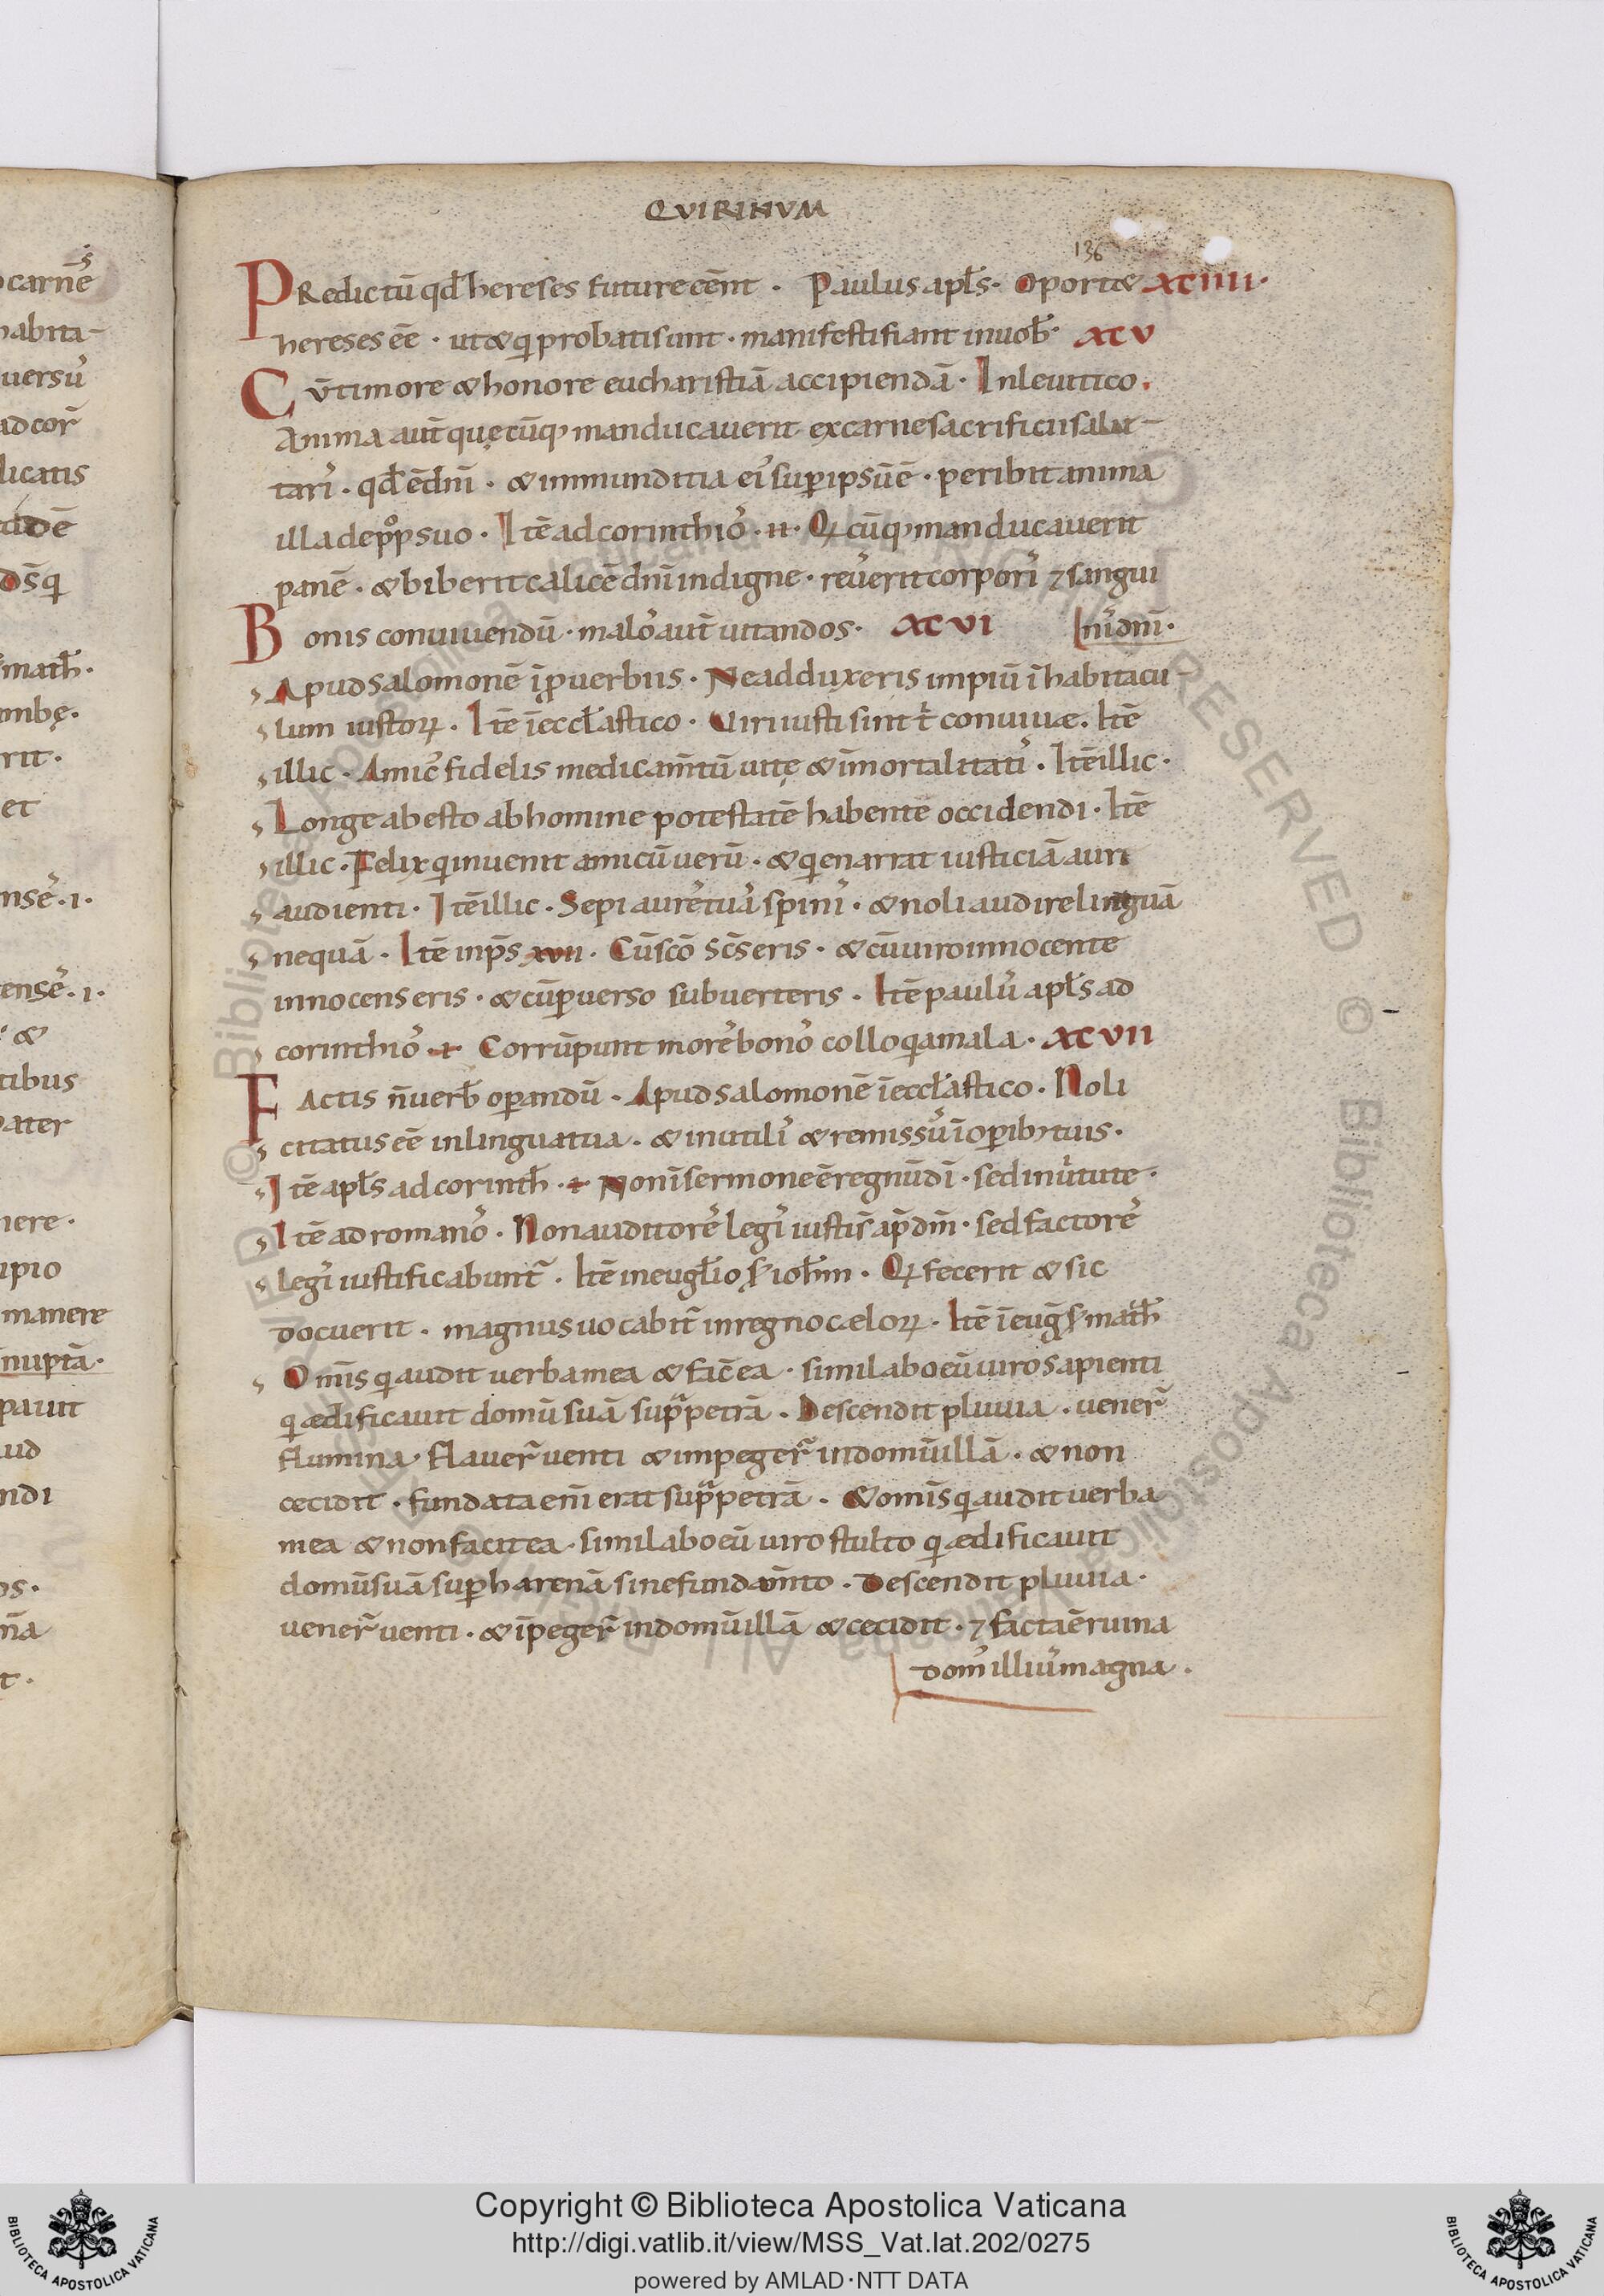 QVIRINVM
136
PRedictū qđ hereses future eēnt · Paulus apłs · Oport& XCIIII ·
hereses eē · ut & qi probati sunt · manifesti fiant in uob̄ · XCV
Cū timore & honore eucharistiā accipiendā · In leuitico .
Anima aut̄ quęcūq; manducauerit ex carne sacrificii salu-
tari᾽ · qđ ē dn̄i · & immunditia ei᾽ sup̱ ipsū ē · peribit anima
illa de pop̱ suo · Itē ad corinthio᾽ · II · Qi cūq; manducauerit
panē · & biberit calicē dn̄i indigne · re᾽ erit corpori᾽ ⁊ sangui
Bonis conuiuendū · malo᾽ aut̄ uitandos · XCVI
ni᾽ dn̄i ·
Apud salomonē ī ꝓuerbiis · Ne adduxeris impiū ī habitacu-
lum iustoꝝ · Itē ī eccƚastico · Viri iusti sint t᾽ conuiuæ . Itē
illic · Amic᾽ fidelis medicam̄tū uitę & īmortalitati᾽ . Itē illic ·
Longe abesto ab homine potestatē habente occidendi · Itē
illic · Felix qi inuenit amicū uerū · & qi enarrat iusticiā auri
audienti · Itē illic · Sepi aure᾽ tua᾽ spini᾽ · & noli audire linguā
nequā · Itē in ps̄ XVII · Cū sc̄o sc̄s eris · & cū uiro innocente
innocens eris · & cū puerso subuerteris . Itē paulu᾽ apłs ad
corinthio᾽ · I · Corrūpunt more᾽ bono᾽ colloqia mala · XCVII
Factis n̄ uerb̄ opandū · Apud salomonē ī eccƚastico · Noli
citatus eē in lingua tua . & inutili᾽ & remissu᾽ ī opib; tuis ·
Itē apłs ad corinth̄ · I · Non ī sermone ē regnū dī · sed in u᾽tute ·
Itē ad romano᾽ · Non auditore᾽ legi᾽ iusti s̄ ap̄ dm̄ · sed factore᾽
legi᾽ iustificabunt᾽ · Itē in eugƚio s̄ ioh̄m · Qi fecerit & sic
docuerit . magnus uocabit᾽ in regno cæloꝝ · Itē ī euḡ s̄ math̄
Omīs qi audit uerba mea & fac̄ ea · similabo eū uiro sapienti
qi ædificauit domū suā suprᵃ petrā . Descendit pluuia . uener᾽
flumina · flauer᾽ uenti & impeger᾽ in domū illā . & non
cecidit · fundata eni᾽ erat suprᵃ petrā . & omīs qi audit uerba
mea & non facit ea · similabo eū uiro stulto qi ædificauit
domū suā sup̱ harenā sine fundam̄to . Descendit pluuia ·
uener᾽ uenti . & īpeger᾽ in domū illā & cecidit · ⁊ facta ē ruina
dom᾽ illiu᾽ magna .
Copyright © Biblioteca Apostolica Vaticana
http://digi.vatlib.it/view/MSS_Vat.lat.202/0275
powered by AMLAD·NTT DATA